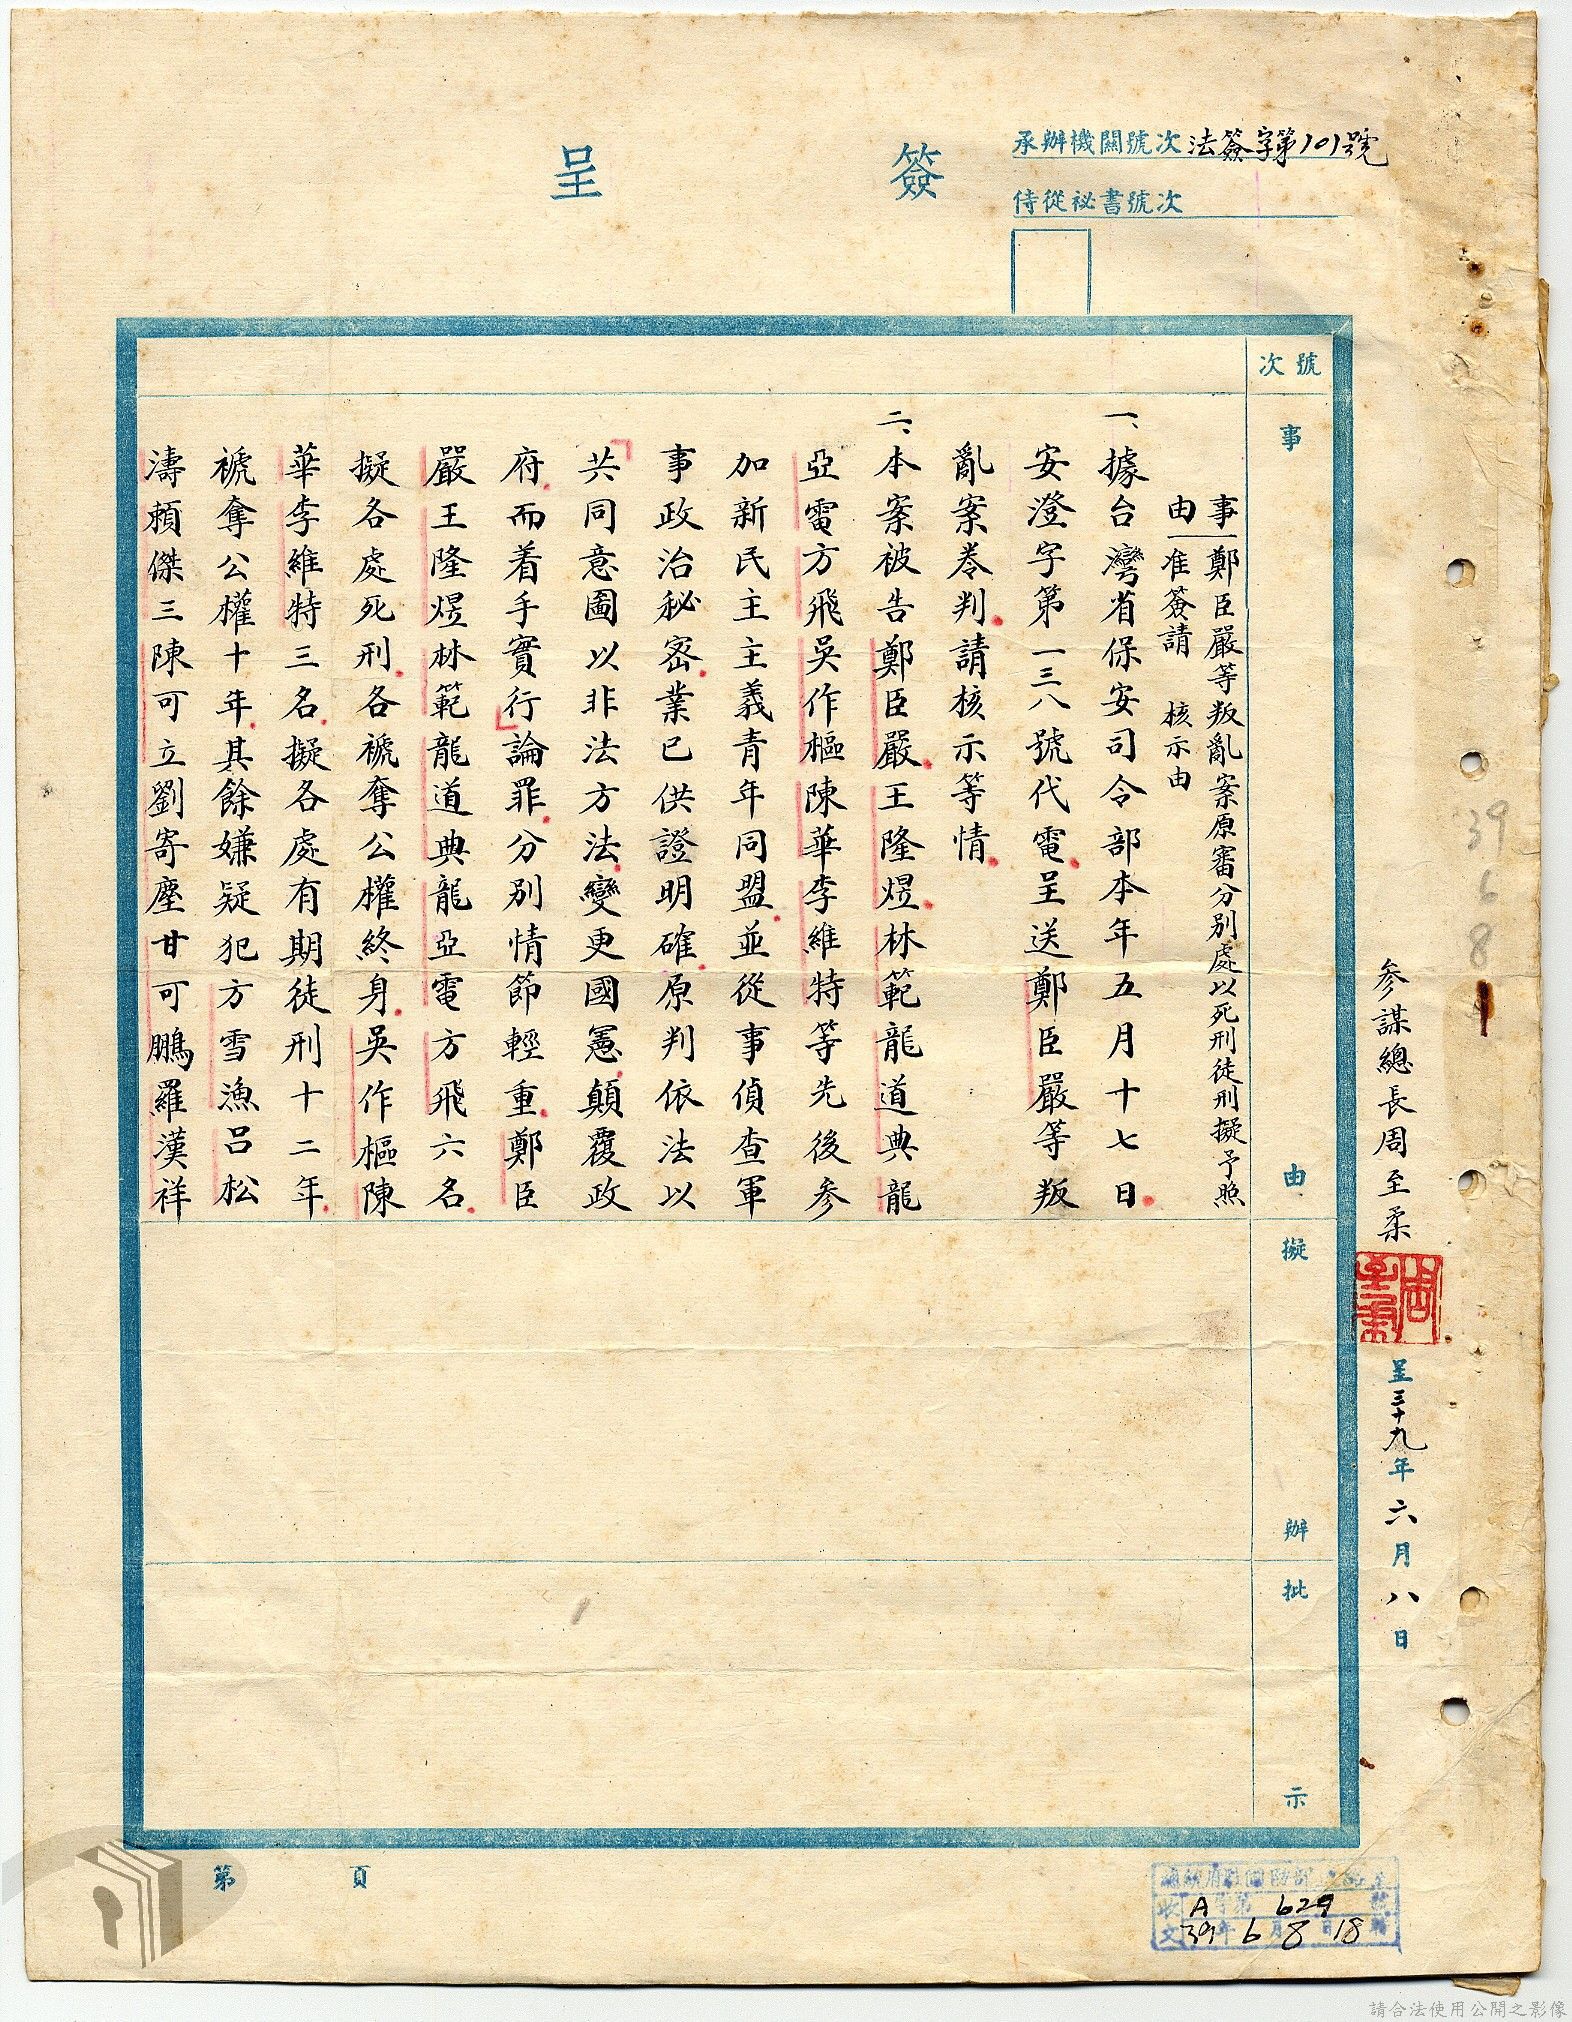 簽呈
承辦機關號次 法簽字第101號
侍從祕書號次
參謀總長周至柔
周至柔
呈三十九年六月八日
39 6 8
號次
事由
擬辦
批示
事由 鄭臣嚴等叛亂案原審分別處以死刑徒刑擬予照
准簽請 核示由
一、據台灣省保安司令部本年五月十七日
安澄字第一三八號代電呈送鄭臣嚴等叛
亂案卷判請核示等情
二、本案被告鄭臣嚴王隆煜林範龍道典龍
亞電方飛吳作樞陳華李維特等先後參
加新民主主義青年同盟並從事偵查軍
事政治秘密業已供證明確原判依法以
共同意圖以非法方法變更國憲顛覆政
府而着手實行論罪分別情節輕重鄭臣
嚴王隆煜林範龍道典龍亞電方飛六名
擬各處死刑各褫奪公權終身吳作樞陳
華李維特三名擬各處有期徒刑十二年
褫奪公權十年其餘嫌疑犯方雪漁呂松
濤賴傑三陳可立劉寄塵甘可鵬羅漢祥
第 頁
收文 A 字第 629 號
39 年 6 月 8 日 18 時
請合法使用公開之影像